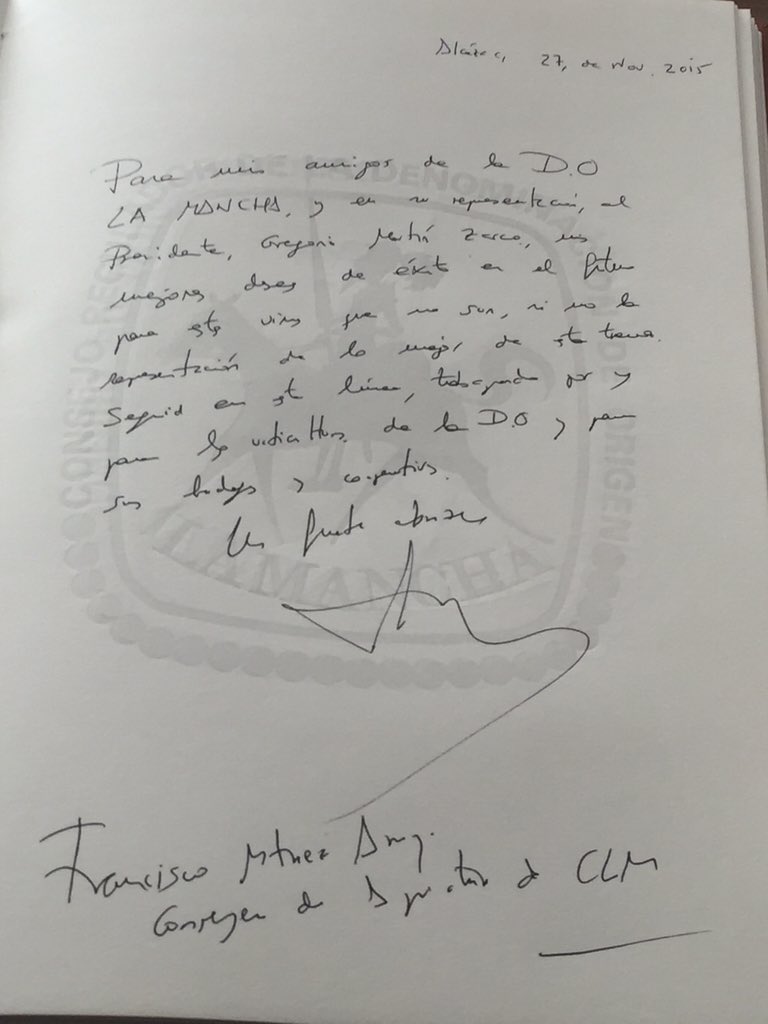 Alcázar, 27, de Nov. 2015
Para mis amigos de la D.O
LA MANCHA, y en su representación, al
Presidente, Gregorio Martín Zarco, mis
mejores deseos de éxito en el futuro
para estos vinos que no son, si no la
representación de lo mejor de esta tierra.
Seguid en esta línea, trabajando por y
para los viticultores de la D.O y para
sus bodegas y cooperativas.
Un fuerte abrazo
Francisco Mtnez Arroy.
Consejero de Agricultura de CLM
CONSEJO REGULADOR DE LA DENOMINACION DE ORIGEN
LA MANCHA